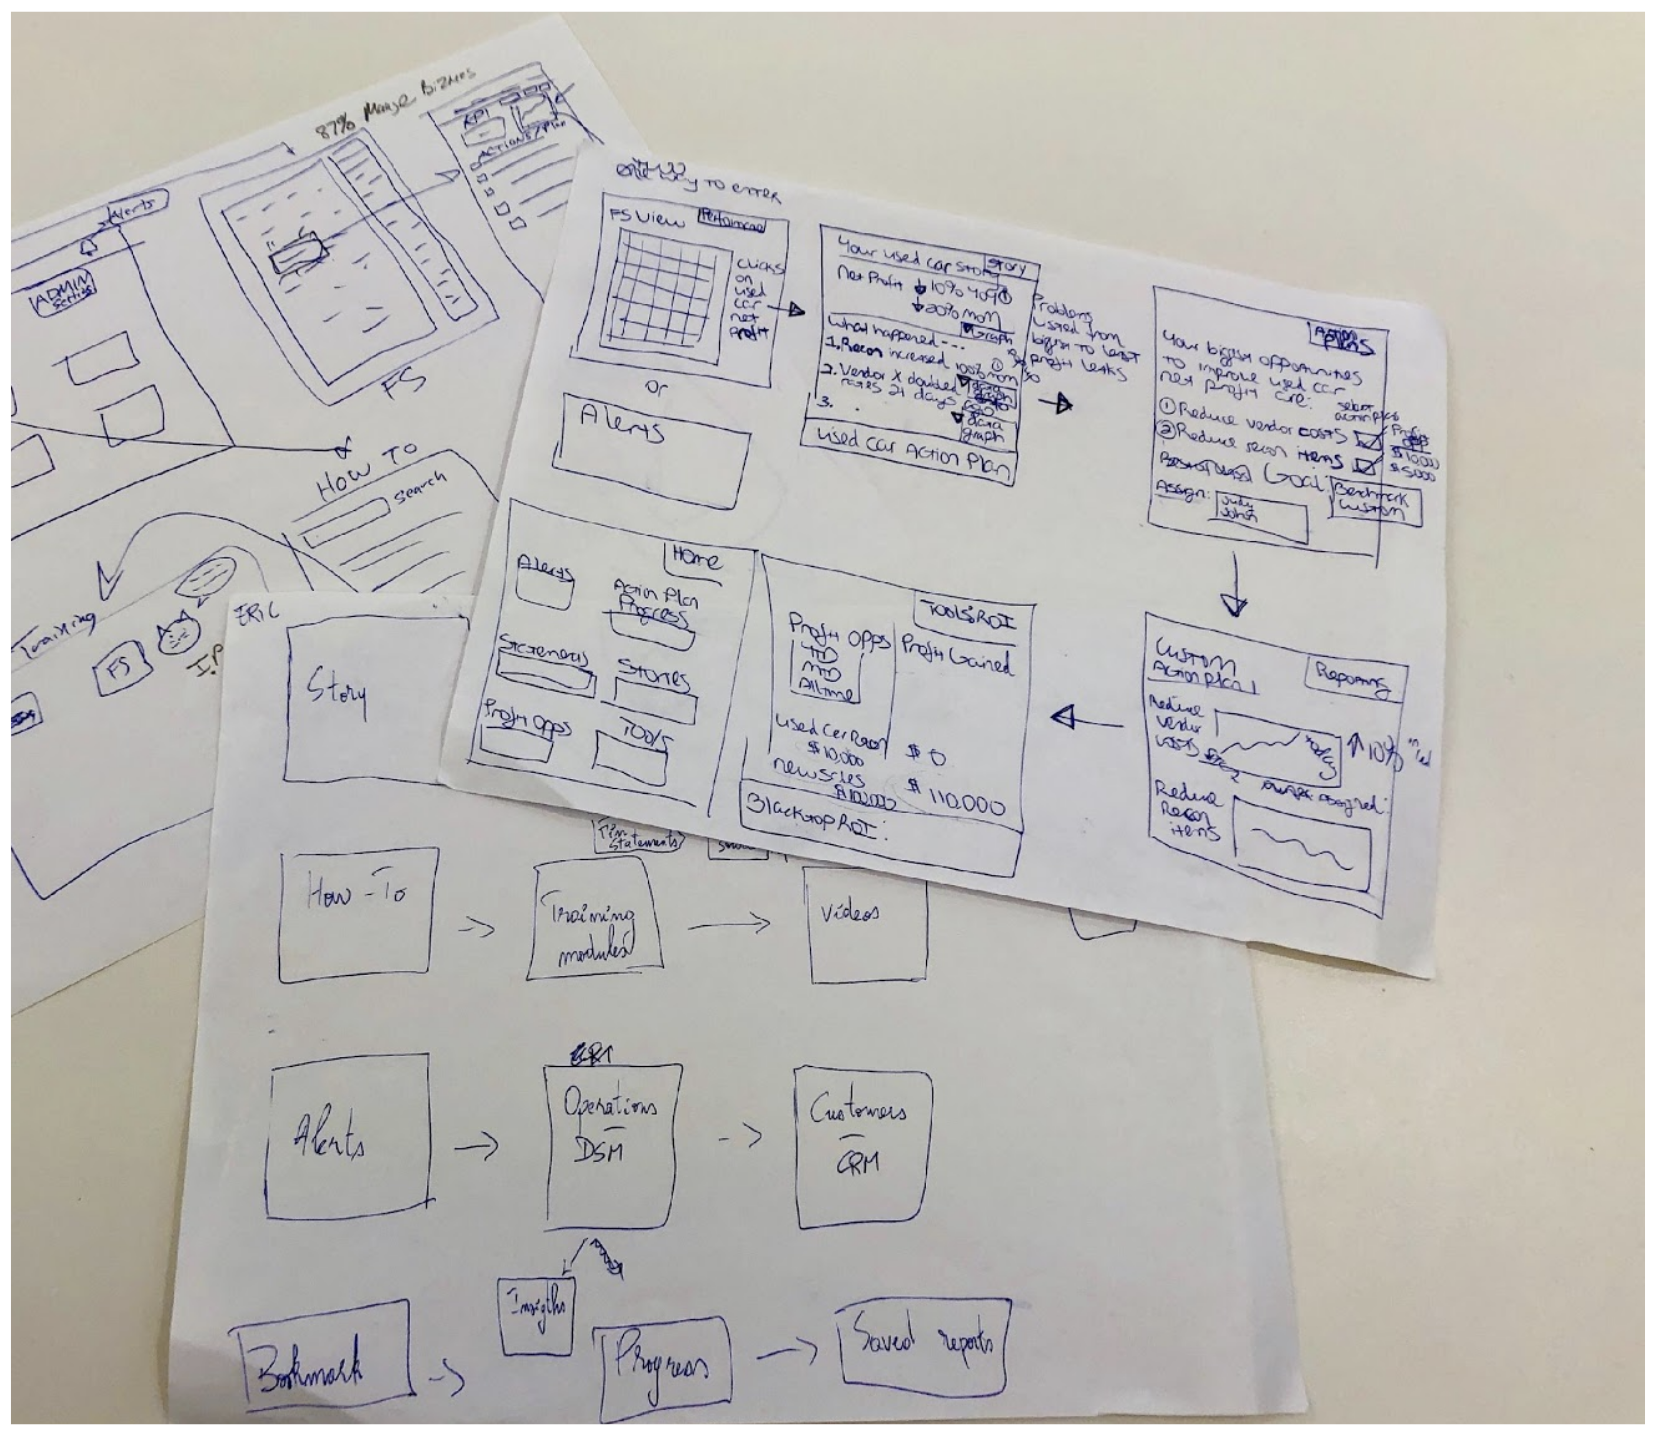 87% Manage
KPI
ACTIONS/Plan
Alerts
ADMIN
FS
HOW TO
search
Training
FS
way to enter
FS View
clicks
on
used
car
net
profit
or
Alerts
Your used car story
Story
Net Profit
10% yoy
20% mom
Graph
What happened---
1. Recon increased 100% mom
2. Vendor X doubled
rates 21 days ago
3.
data
graph
Used Car Action Plan
Problems
Listed from
biggest to least
profit leaks
Action
Plans
Your biggest opportunities
to improve used car
net profit are:
select
action plan
① Reduce vendor costs
$10,000
② Reduce recon items
$5,000
Goal:
Benchmark
Custom
Assign:
Judy
John
Home
Alerts
Action Plan
Progress
Statements
Stories
Profit Opps
Tools
Tools ROI
Profit Opps
YTD
MTD
All time
Profit Gained
Used Car Recon
$10,000
$0
new sales
$100,000
$110,000
Blacktop ROI:
Custom
Action Plan 1
Reporting
Reduce
Vendor
costs
↑10%
assigned:
Reduce
Recon
items
ERIC
Story
Statements
How-To
Training
modules
Videos
Alerts
Operations
DSM
Customers
CRM
Insigths
Bookmark
Progress
Saved reports